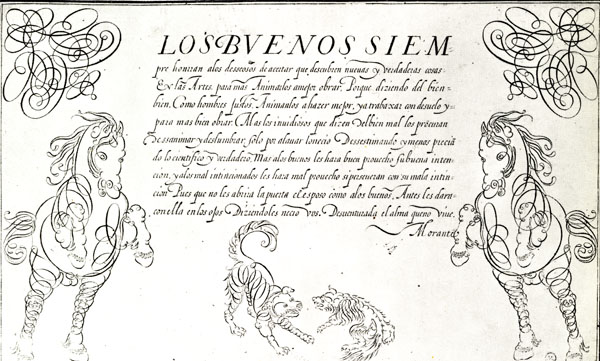 LOS BVENOS SIEM-
pre honrran alos desseosos de acertar que descubren nueuas y verdaderas cosas
En las Artes para mas Animarlos amejor obrar. Porque diziendo del bien
bien. Como hombres justos Animanlos a hazer mejor, ya trabaxar con desuelo y
para mas bien obrar. Mas los inuidiosos que dizen del bien mal los procuran
Dessanimar y deslumbrar solo por alauar lonecio Dessestimando y menos precia
do lo cientifico y verdadero. Mas alos buenos les hara buen prouecho su buena inten
cion, y alos mal intincionados les hara mal prouecho si perseueran con su mala intin
cion Pues que no les abrira la puerta el esposo como alos buenos. Antes les daran
con ella en los ojos Diziendoles necio vos. Desuenturada el alma que no viue.
Morante